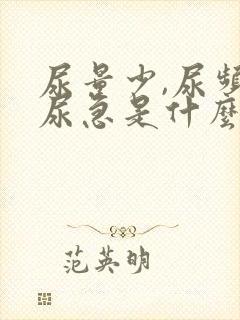 尿量少,尿頻
尿急是什麼
范英明